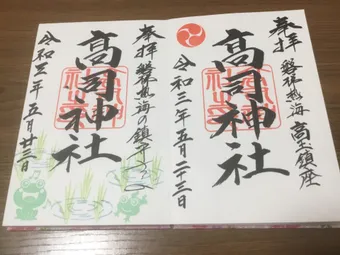 奉拝 磐梯熱海 高玉鎮座
高司神社
令和三年五月二十三日
奉拝 磐梯熱海の鎮守
高司神社
令和三年五月廿三日